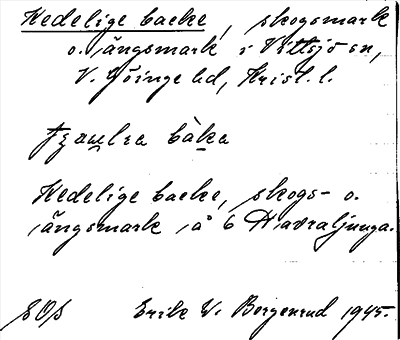 Hedelige backe, skogsmark
o. ängsmark i Vittsjö sn,
V. Göinge hd, Krist. l.
bàka
Hedelige backe, skogs- o.
ängsmark å 6 Havraljunga.
SOS Erik W. Borgenrud 1945.